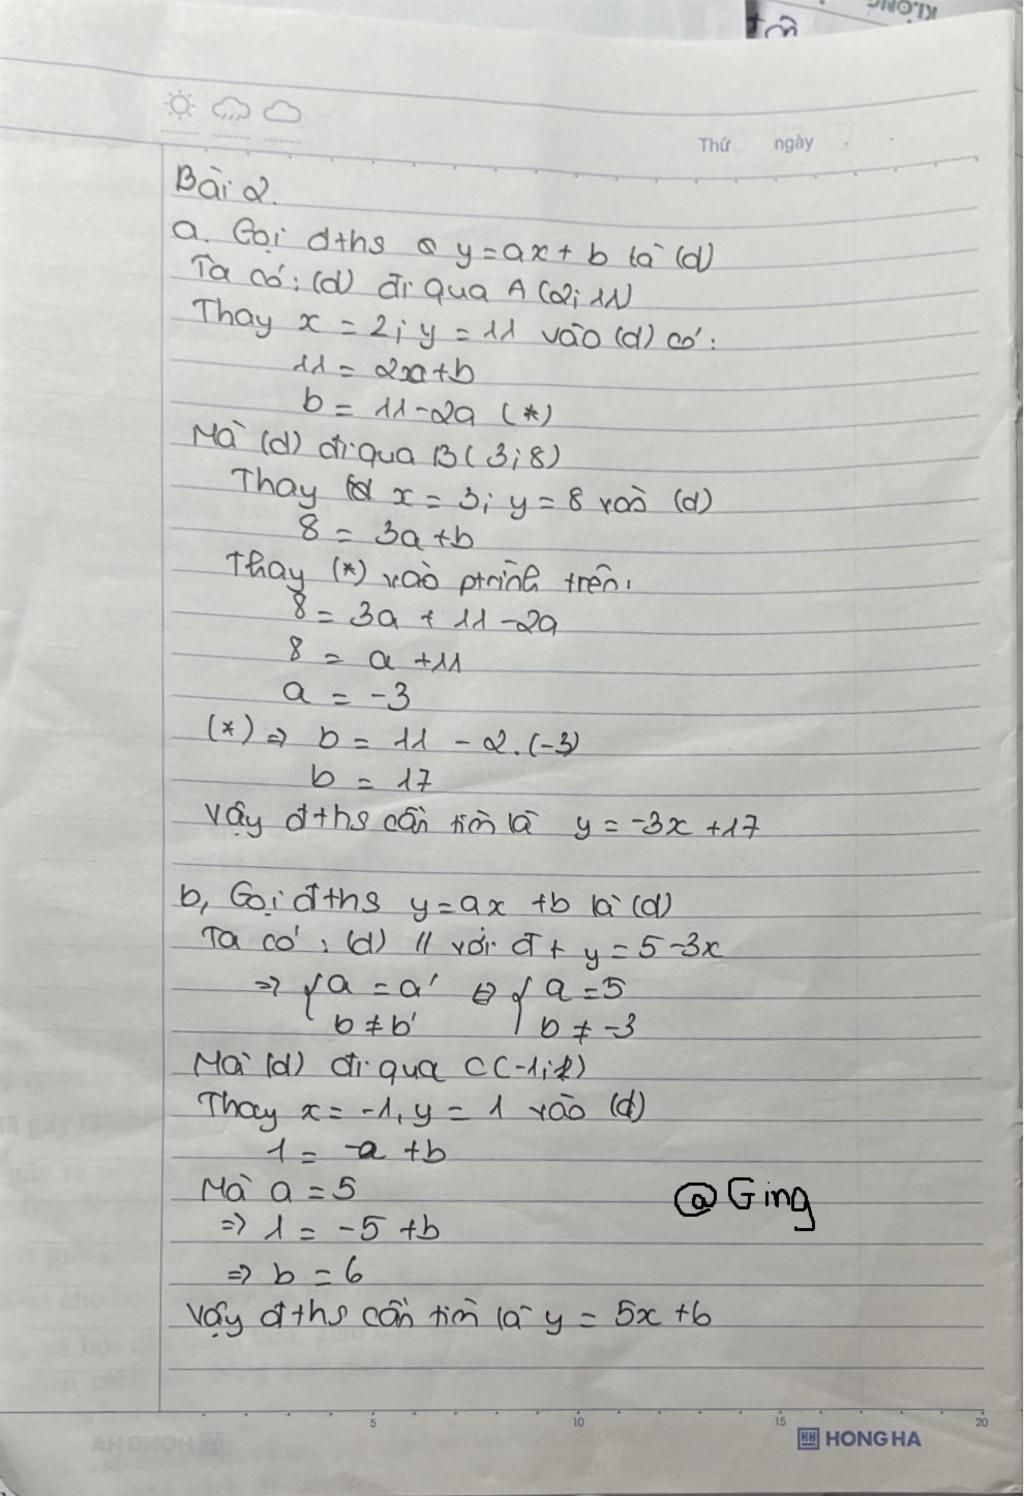 Thứ ngày
Bài 2.
a. Gọi đths y=ax+b là (d)
Ta có: (d) đi qua A (2; 11)
Thay x = 2; y = 11 vào (d) có:
11 = 2a+b
b = 11-2a (*)
Mà (d) đi qua B( 3; 8)
Thay x = 3; y = 8 vào (d)
8 = 3a+b
Thay (*) vào ptrình trên:
8 = 3a + 11-2a
8 = a +11
a = -3
(*) => b = 11 - 2.(-3)
b = 17
Vậy đths cần tìm là y = -3x +17
b, Gọi đths y=ax +b là (d)
Ta có: (d) // với đt y = 5-3x
=> { a = a' <=> { a =5
b ≠ b' b ≠ -3
Mà (d) đi qua C(-1;1)
Thay x = -1, y = 1 vào (d)
1 = -a +b
Mà a = 5
=> 1 = -5 +b
=> b = 6
Vậy đths cần tìm là y = 5x +6
@Ging
5 10 15 20
HONG HA